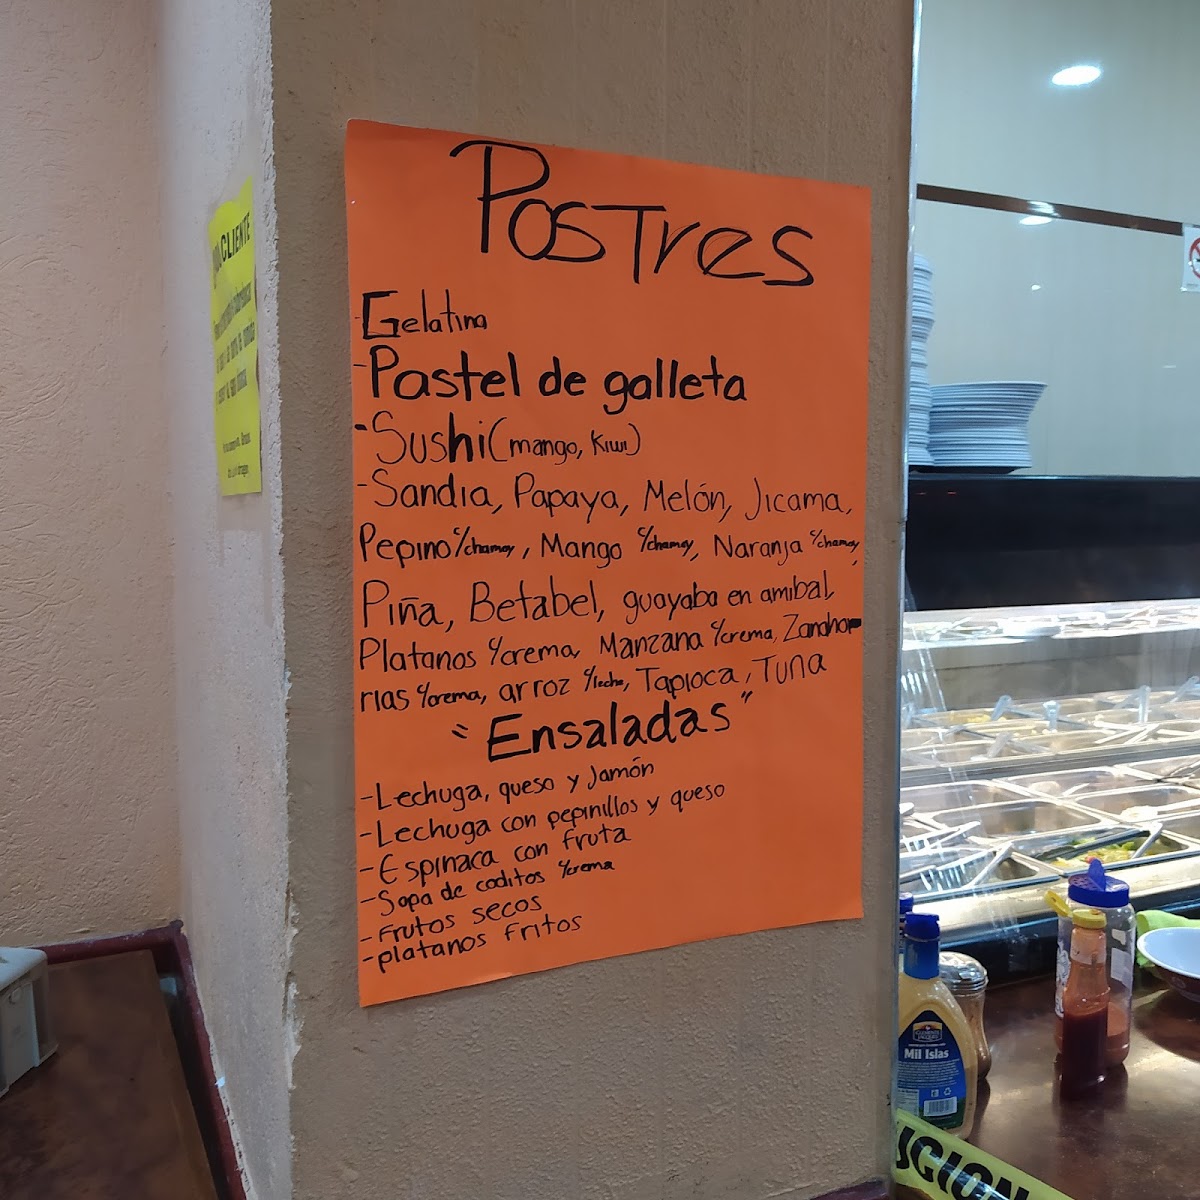 Postres
-Gelatina
-Pastel de galleta
-Sushi (mango, Kiwi)
-Sandia, Papaya, Melón, Jicama,
Pepino c/chamoy, Mango c/chamoy, Naranja c/chamoy,
Piña, Betabel, guayaba en amibal,
Platanos c/crema, Manzana c/crema, Zanaho
rias c/crema, arroz c/leche, Tapioca, Tuna
"Ensaladas"
-Lechuga, queso y Jamón
-Lechuga con pepinillos y queso
-Espinaca con fruta
-Sopa de coditos c/crema
-Frutos secos
-platanos fritos
CLIENTE
CLEMENTE
JACQUES
Mil Islas